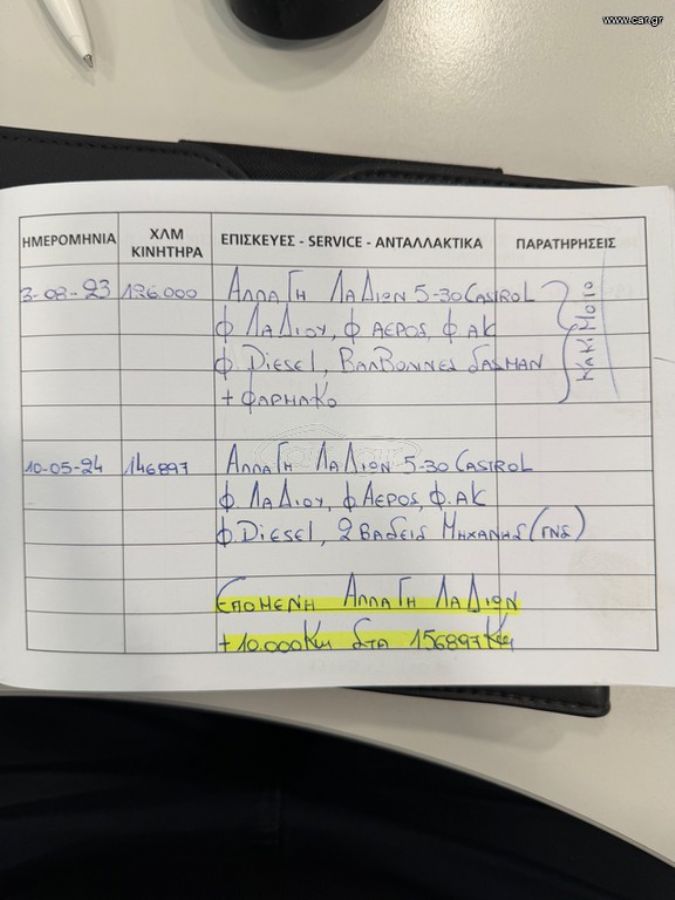 www.car.gr
ΗΜΕΡΟΜΗΝΙΑ ΧΛΜ ΚΙΝΗΤΗΡΑ ΕΠΙΣΚΕΥΕΣ - SERVICE - ΑΝΤΑΛΛΑΚΤΙΚΑ ΠΑΡΑΤΗΡΗΣΕΙΣ
3-08-23 136.000 ΑΛΛΑΓΗ ΛΑΔΙΩΝ 5-30 CASTROL
Φ ΛΑΔΙΟΥ, Φ ΑΕΡΟΣ, Φ. AC
Φ. Diesel, ΒΑΛΒΟΛΙΝΕΣ
+ ΦΑΡΜΑΚΟ
10-05-24 146897 ΑΛΛΑΓΗ ΛΑΔΙΩΝ 5-30 CASTROL
Φ. ΛΑΔΙΟΥ, Φ ΑΕΡΟΣ, Φ. AC
Φ. Diesel, 2 ΒΑΣΕΙΣ ΜΗΧΑΝΗΣ
ΕΠΟΜΕΝΗ ΑΛΛΑΓΗ ΛΑΔΙΩΝ
+10.000Km ΣΤΑ 156897 Km